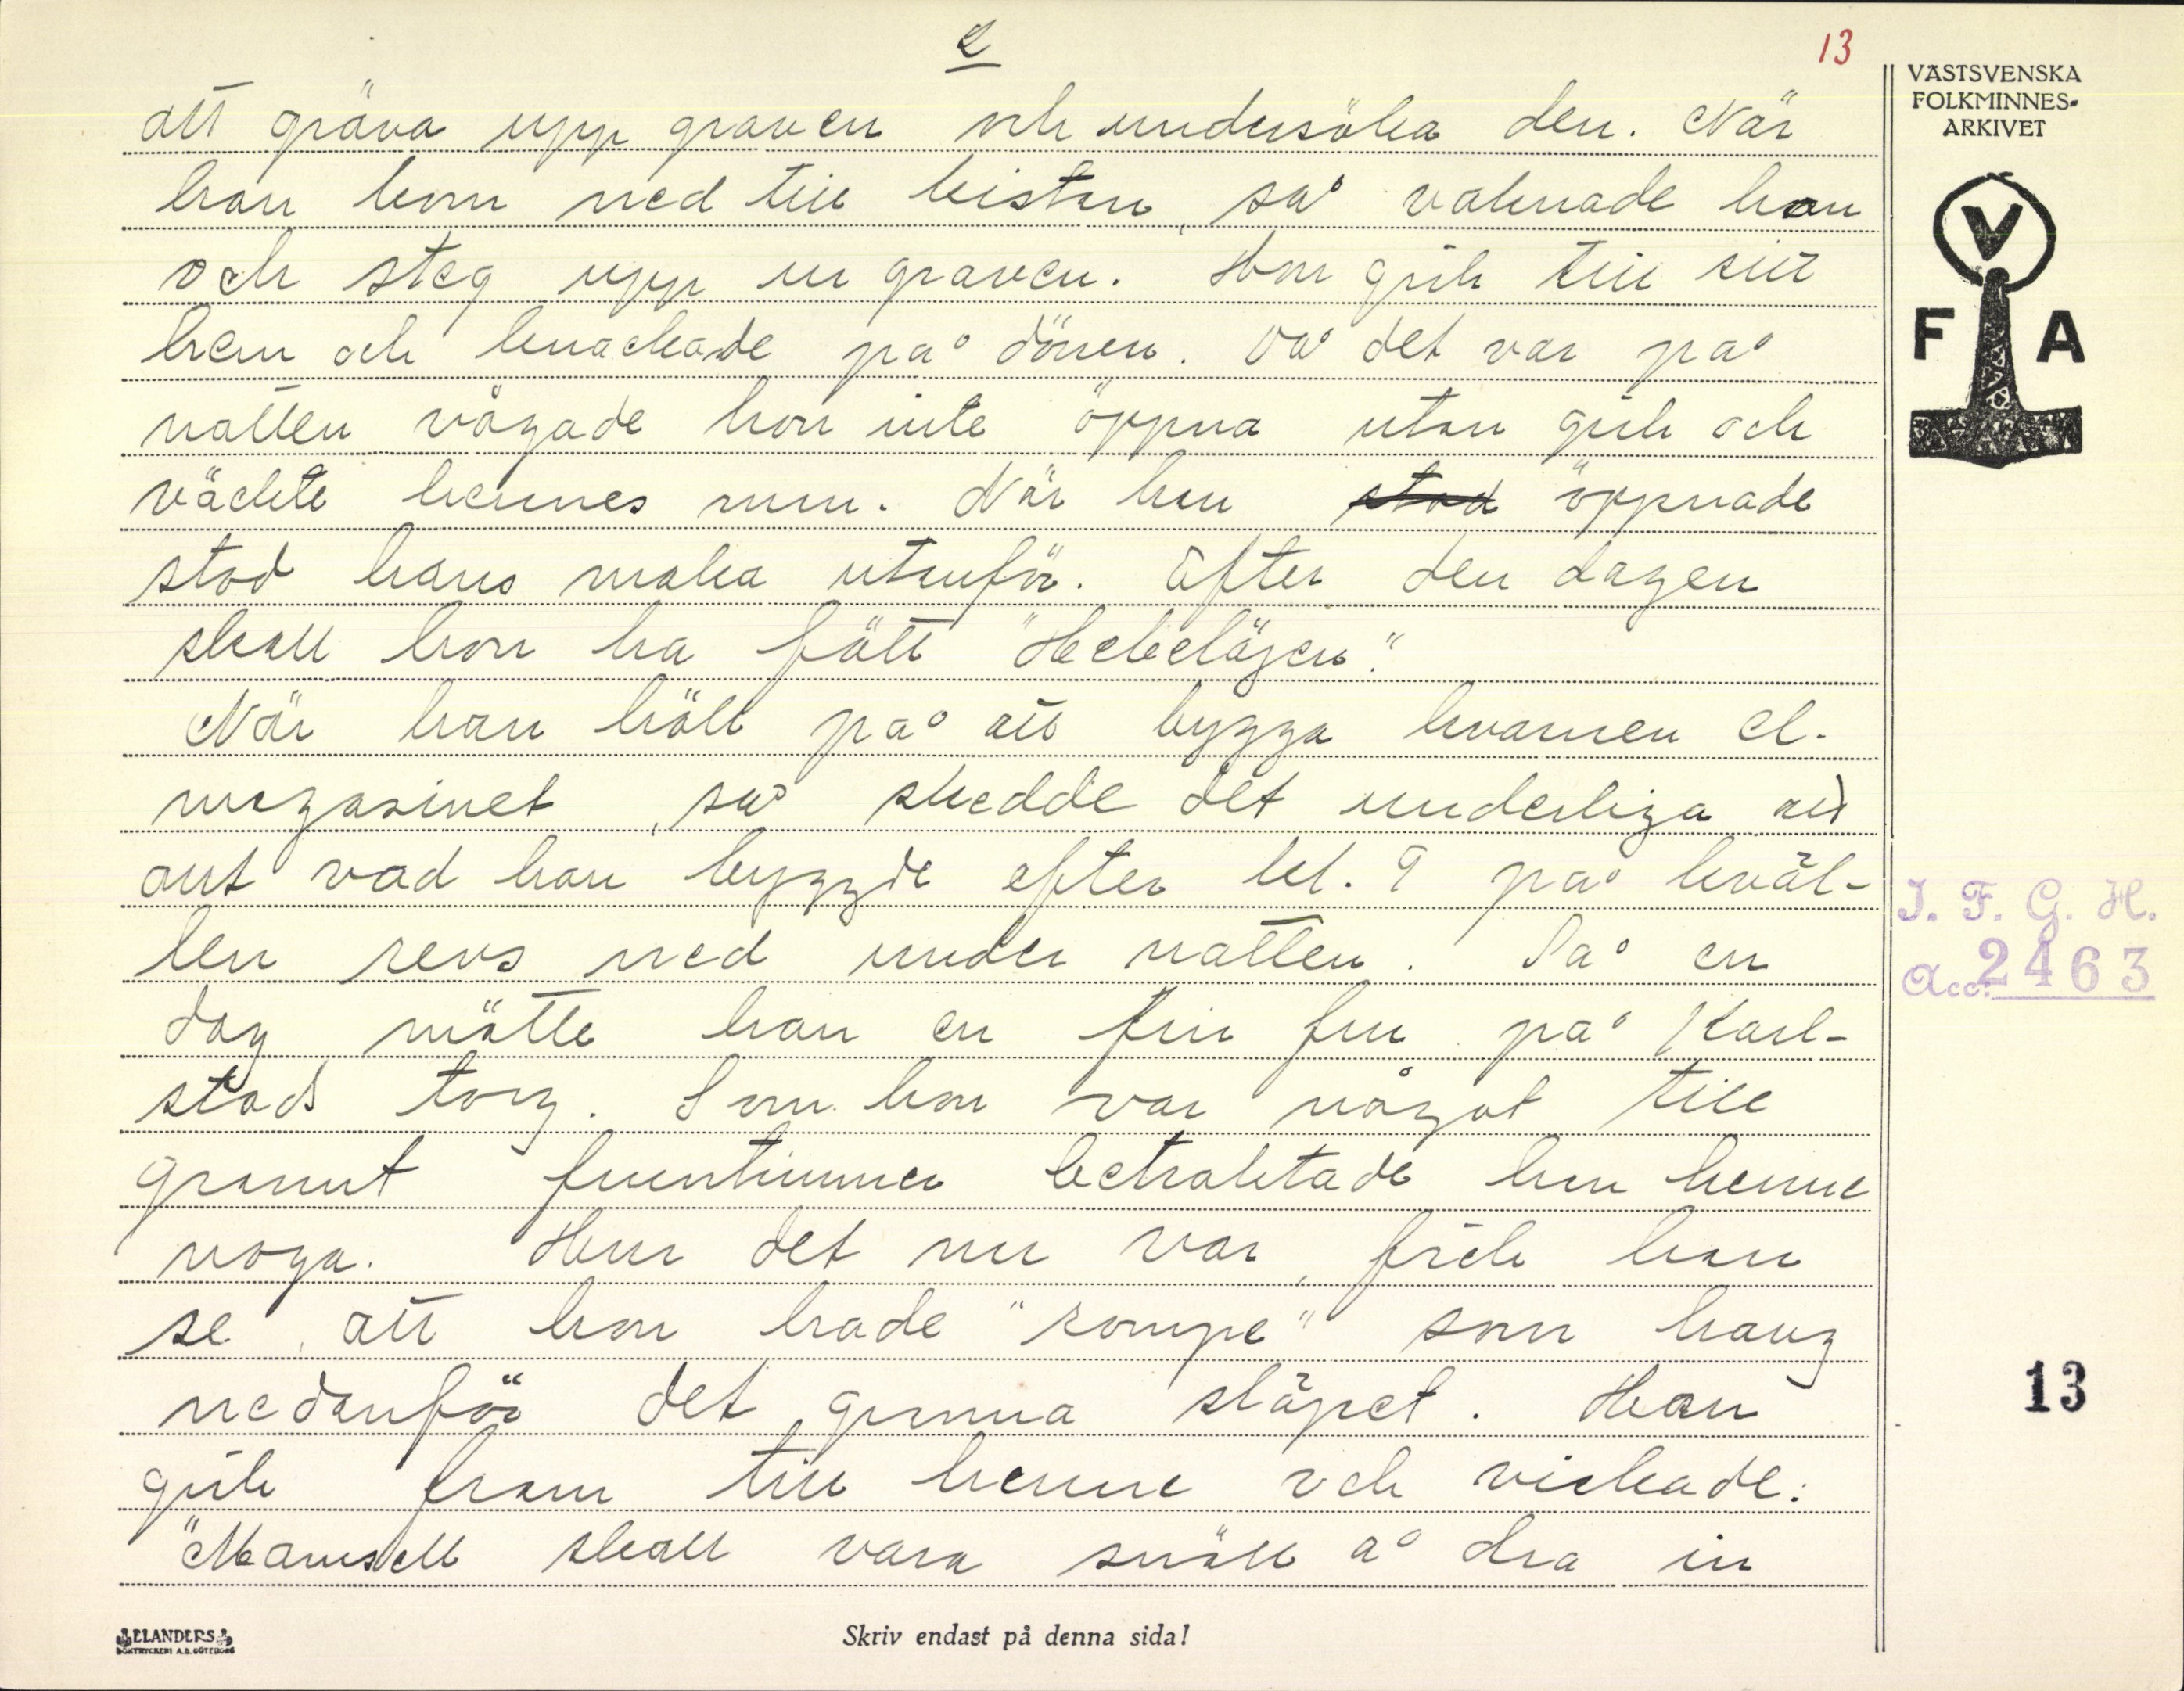 2
13
att gräva upp graven och undersöka den. När
han kom ned till kistan, så vaknade hon
och steg upp ur graven. Hon gick till sitt
hem och knackade på dörren. Då det var på
natten vågade hon inte öppna utan gick och
väckte hennes man. När han stod öppnade
stod hans maka utanför. Efter den dagen
skall hon ha fått "Heckelägen".
När han höll på att bygga kvarnen el.
magasinet, så skedde det underliga att
allt vad han byggde efter kl. 9 på kväl-
len revs ned under natten. På en
dag mötte han en fin fru på Karl-
stads torg. Som hon var något till
grannt fruentimmer betraktade han henne
noga. Hur det nu var, fick han
se, att hon hade "rompe" som hang
nedanför det granna släpet. Han
gick fram till henne och viskade:
"Mamsell skall vara snäll å dra in
VÄSTSVENSKA
FOLKMINNES-
ARKIVET
V
F A
I. F. G. H.
Acc. 2463
13
ELANDERS
BOKTRYCKERI A.B. GÖTEBORG
Skriv endast på denna sida!